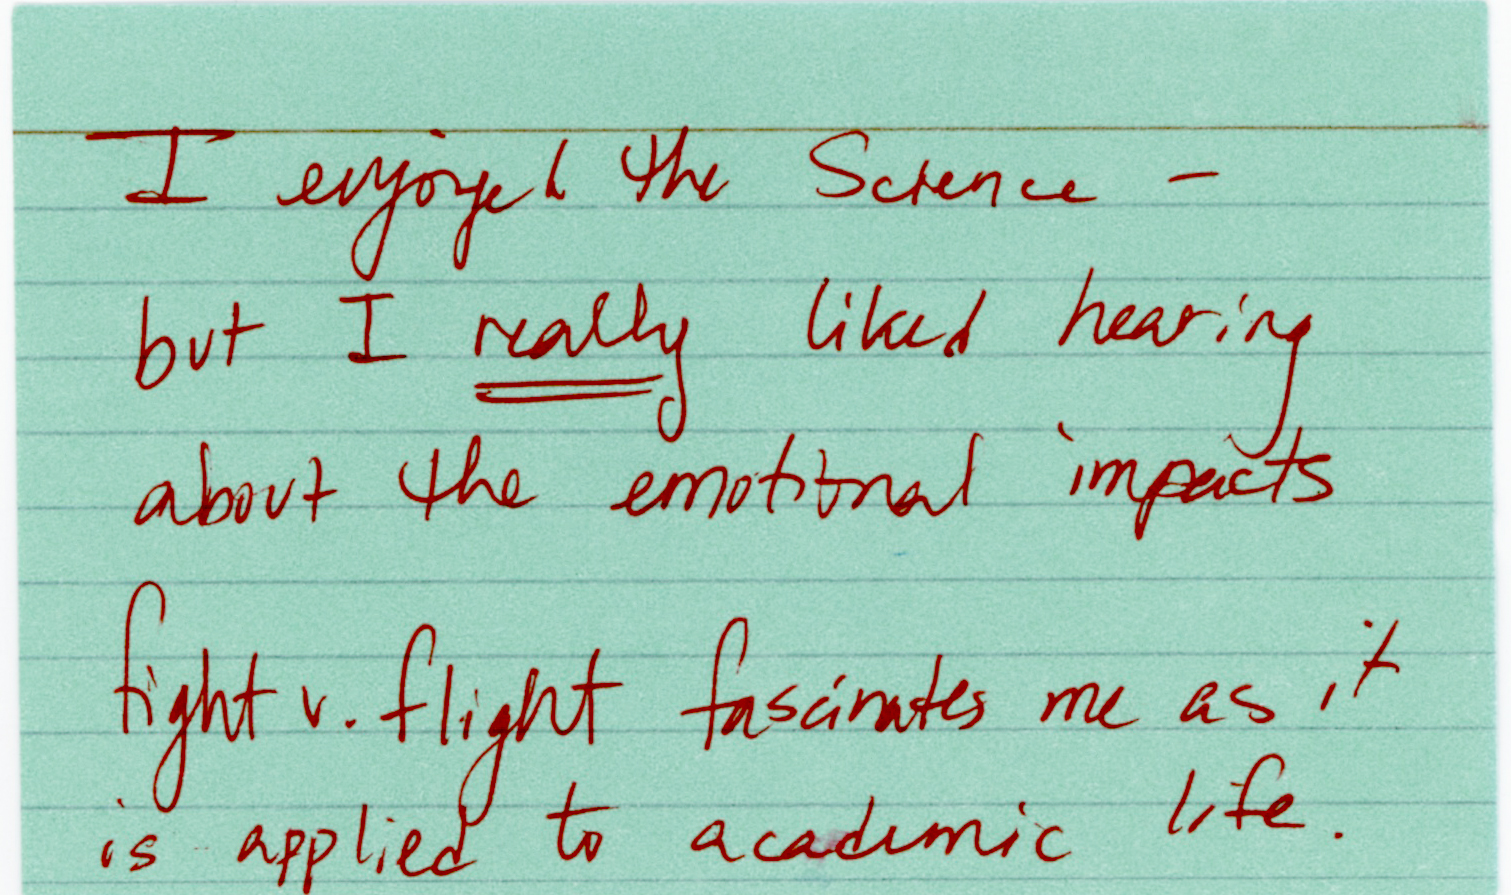 I enjoyed the Science -
but I really liked hearing
about the emotional impacts
fight v. flight fascinates me as it
is applied to academic life.